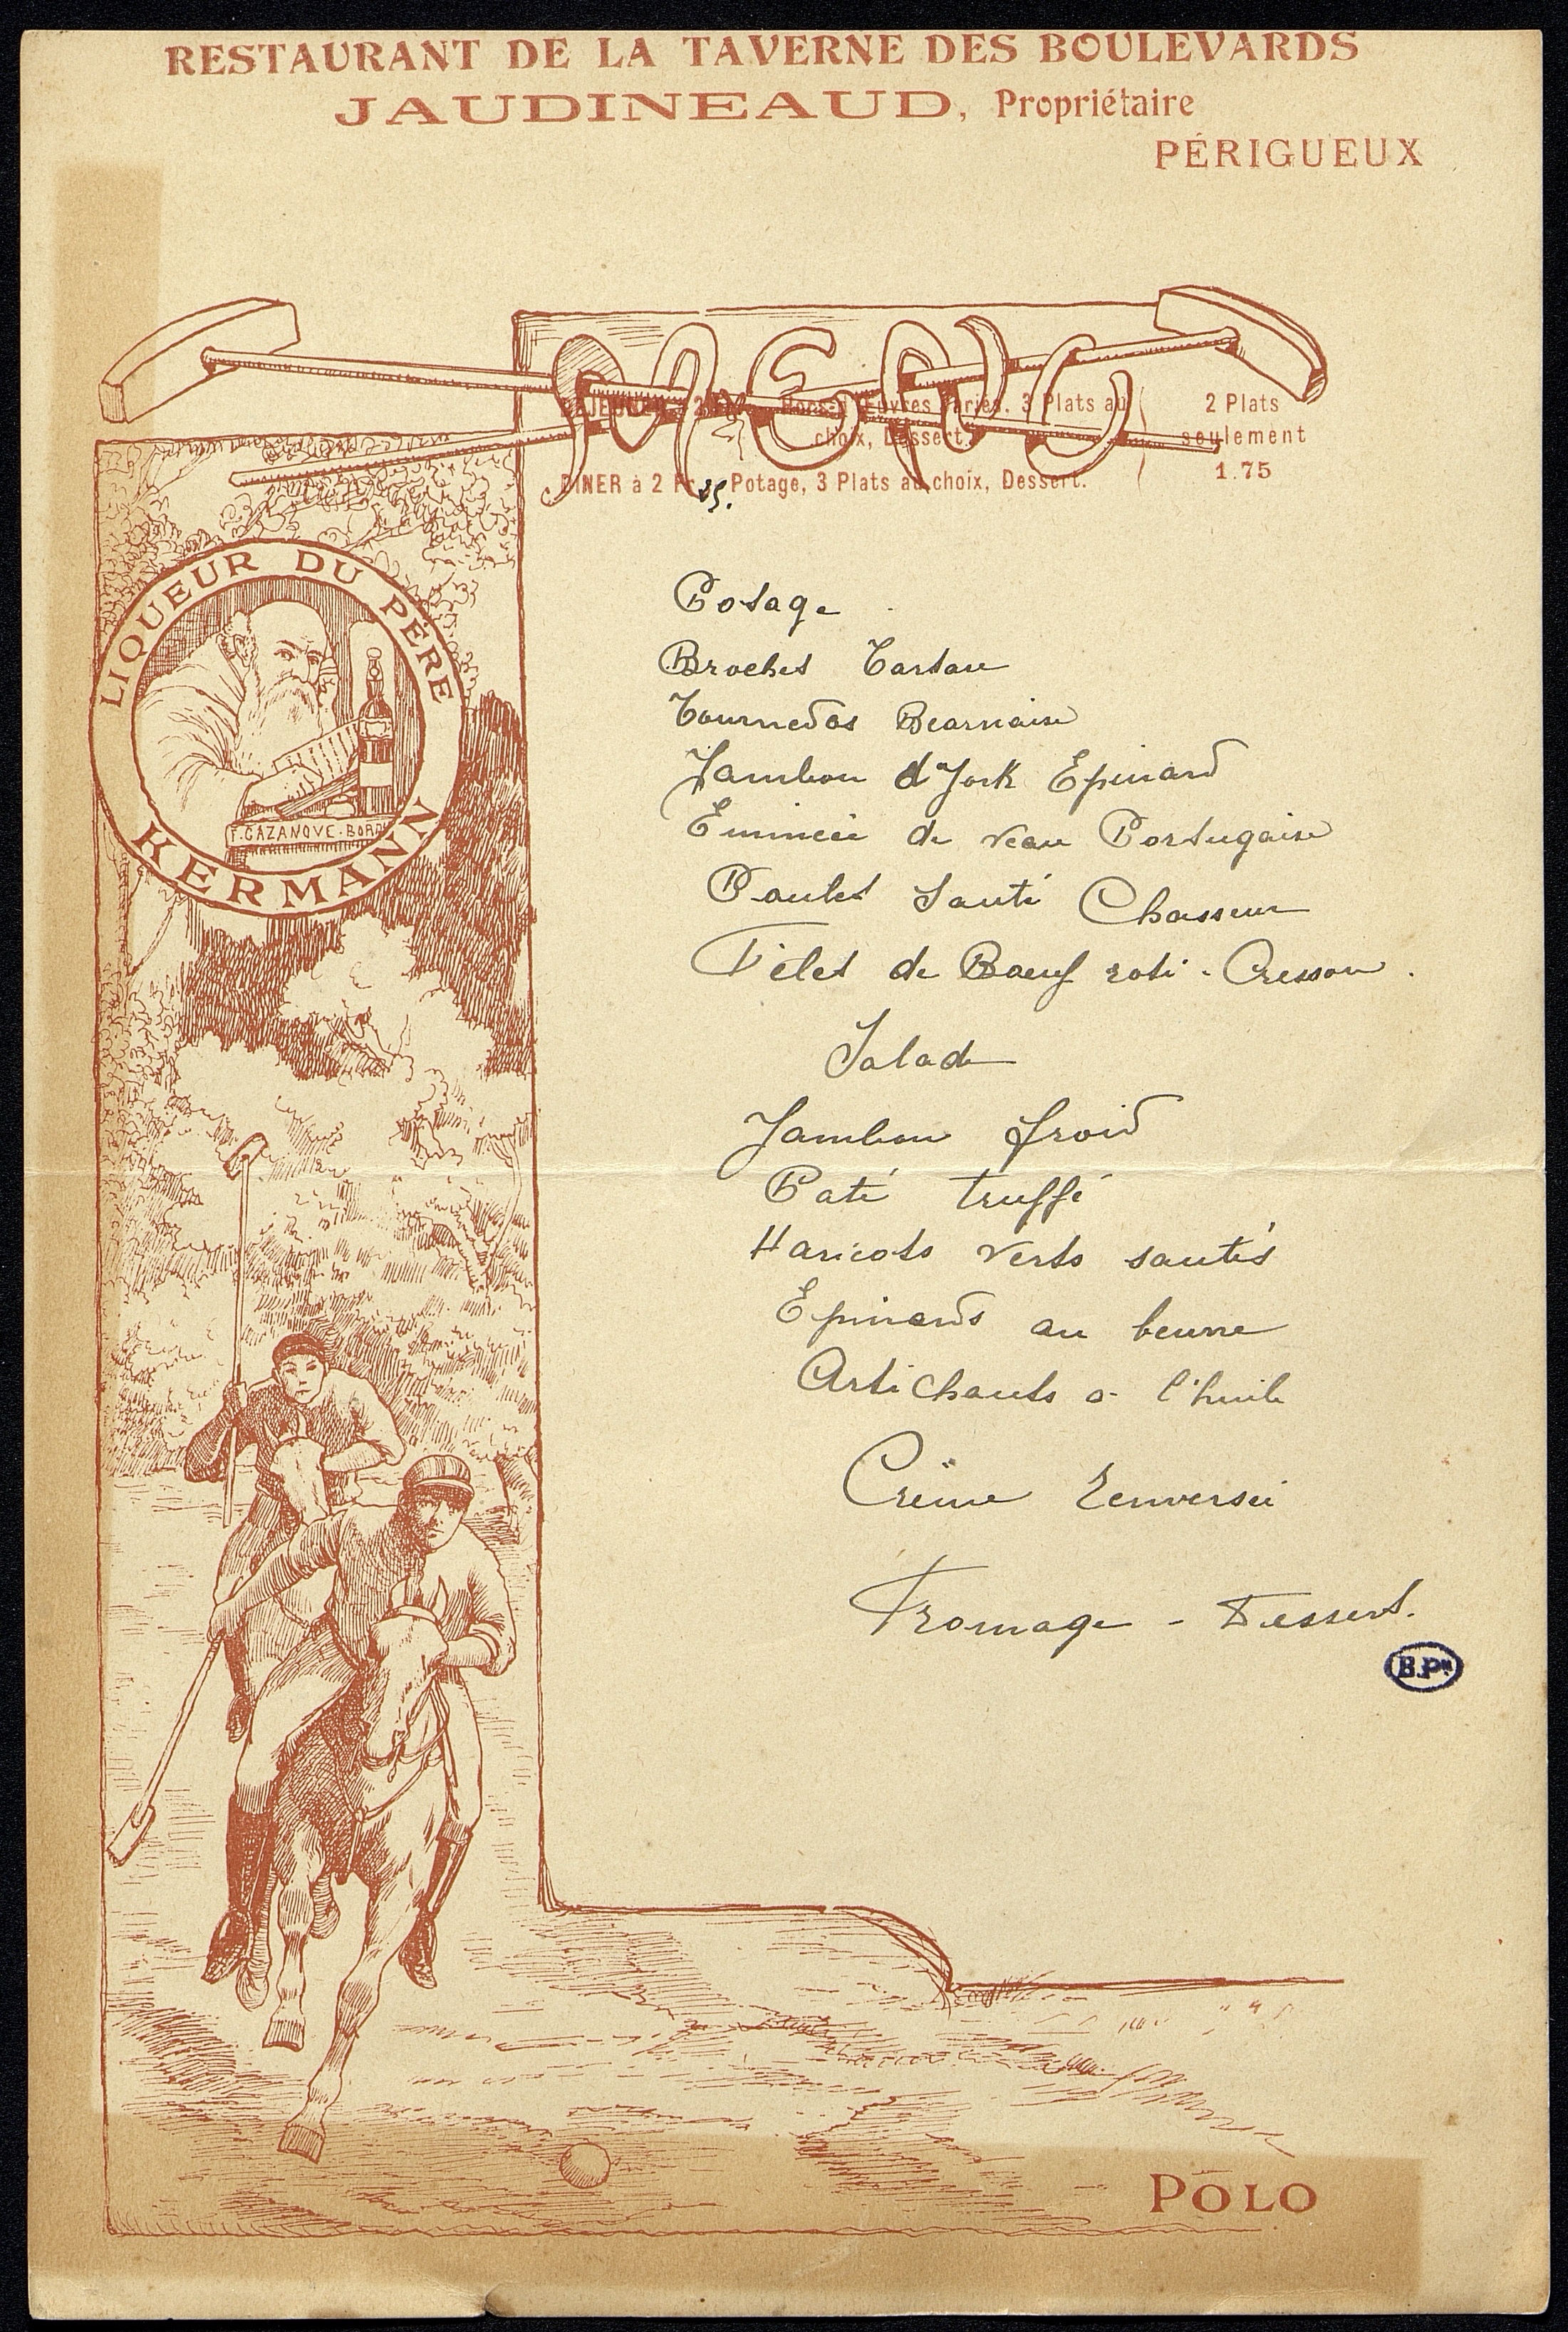 RESTAURANT DE LA TAVERNE DES BOULEVARDS
JAUDINEAUD, Propriétaire
PÉRIGUEUX
MENU
DÉJEUNER à 2 Hors-d'Œuvres variés. 3 Plats au
choix, Dessert.
2 Plats
seulement
1.75
DINER à 2 Fr. 25. Potage, 3 Plats au choix, Dessert.
LIQUEUR DU PÈRE
KERMANN
F. CAZANOVE. BORD
Potage
Brochet Tartare
Tournedos Bearnaise
Jambon d'York Epinard
Emincée de veau Portugaise
Poulet Sauté Chasseur
Filet de Boeuf roti - Cresson.
Salade
Jambon froid
Paté truffé
Haricots verts sautés
Epinards au beurre
Artichauts a l'huile
Crême renversée
Fromage - Dessert.
B.Px
POLO